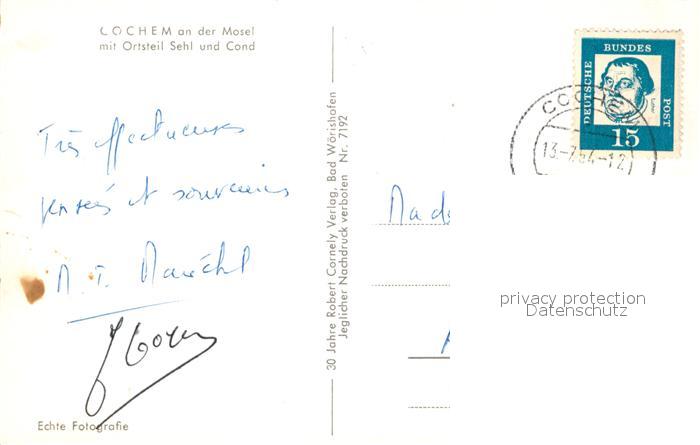 COCHEM an der Mosel
mit Ortsteil Sehl und Cond
Très affectueuses
pensées et souvenirs
Echte Fotografie
30 Jahre Robert Cornely Verlag, Bad Wörishofen
Jeglicher Nachdruck verboten Nr. 7192
DEUTSCHE
BUNDES
POST
Luther
15
COCHEM
Mada
privacy protection
Datenschutz